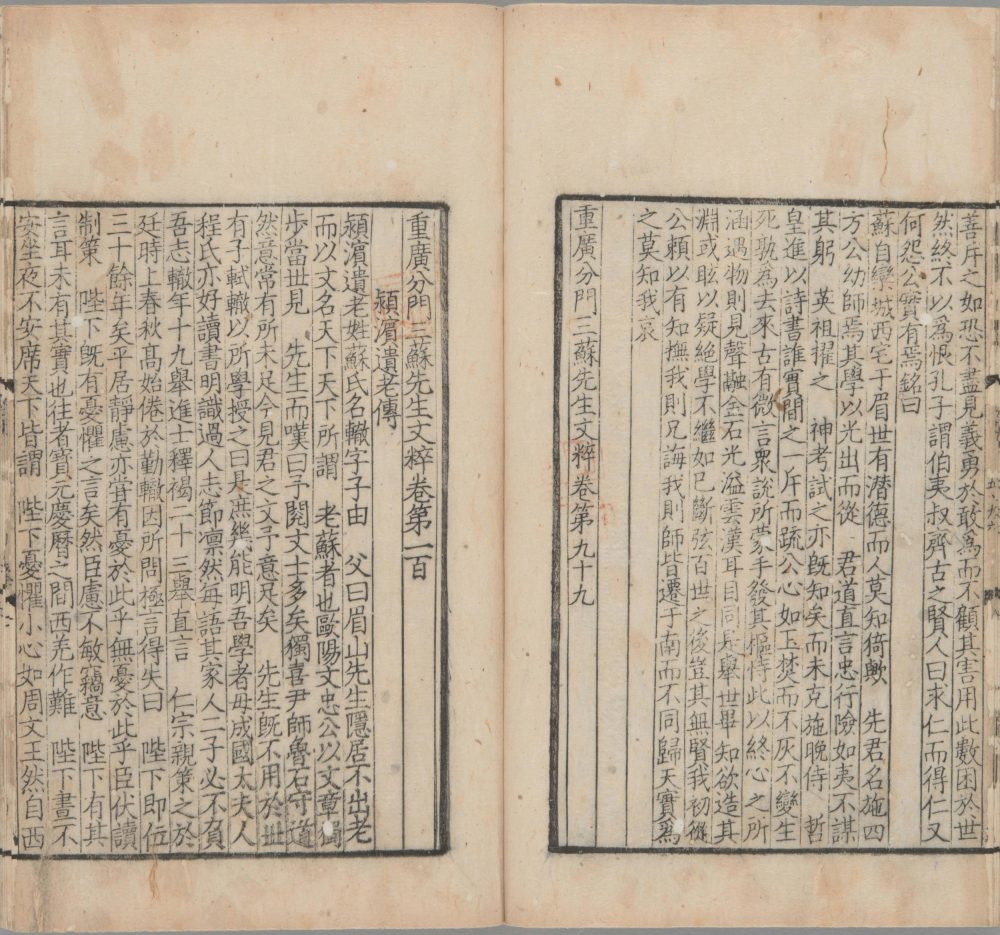 善斥之如恐不盡見義勇於敢爲而不顧其害用此數困於世
然終不以爲恨孔子謂伯夷叔齊古之賢人曰求仁而得仁又
何怨公實有焉銘曰
蘇自欒城西宅于眉世有潜德而人莫知猗歟　先君名施四
方公幼師焉其學以光出而從　君道直言忠行險如夷不謀
其躬　英祖擢之　神考試之亦既知矣而未克施晚侍　哲
皇進以詩書誰實間之一斥而疏公心如玉焚而不灰不變生
死孰爲去來古有微言衆說所蒙手發其樞恃此以終心之所
涵遇物則見聲融金石光溢雲漢耳目同是舉世畢知欲造其
淵或眩以疑絕學不繼如已斷弦百世之後豈其無賢我初從
公頼以有知撫我則兄誨我則師皆遷于南而不同歸天實爲
之莫知我哀
重廣分門三蘇先生文粹卷第九十九
重廣分門三蘇先生文粹卷第一百
潁濱遺老傳
潁濱遺老姓蘇氏名轍字子由　父曰眉山先生隱居不出老
而以文名天下天下所謂　老蘇者也歐陽文忠公以文章獨
步當世見　先生而嘆曰予閱文士多矣獨喜尹師魯石守道
然意常有所未足今見君之文予意足矣　先生既不用於世
有子軾轍以所學授之曰是庶幾能明吾學者母成國太夫人
程氏亦好讀書明識過人志節凛然每語其家人二子必不負
吾志轍年十九舉進士釋褐二十三舉直言　仁宗親策之於
廷時上春秋髙始倦於勤轍因所問極言得失曰　陛下即位
三十餘年矣平居靜慮亦甞有憂於此乎無憂於此乎臣伏讀
制策　陛下既有憂懼之言矣然臣慮不敏竊意　陛下有其
言耳未有其實也往者寳元慶曆之間西羌作難　陛下晝不
安坐夜不安席天下皆謂　陛下憂懼小心如周文王然自西